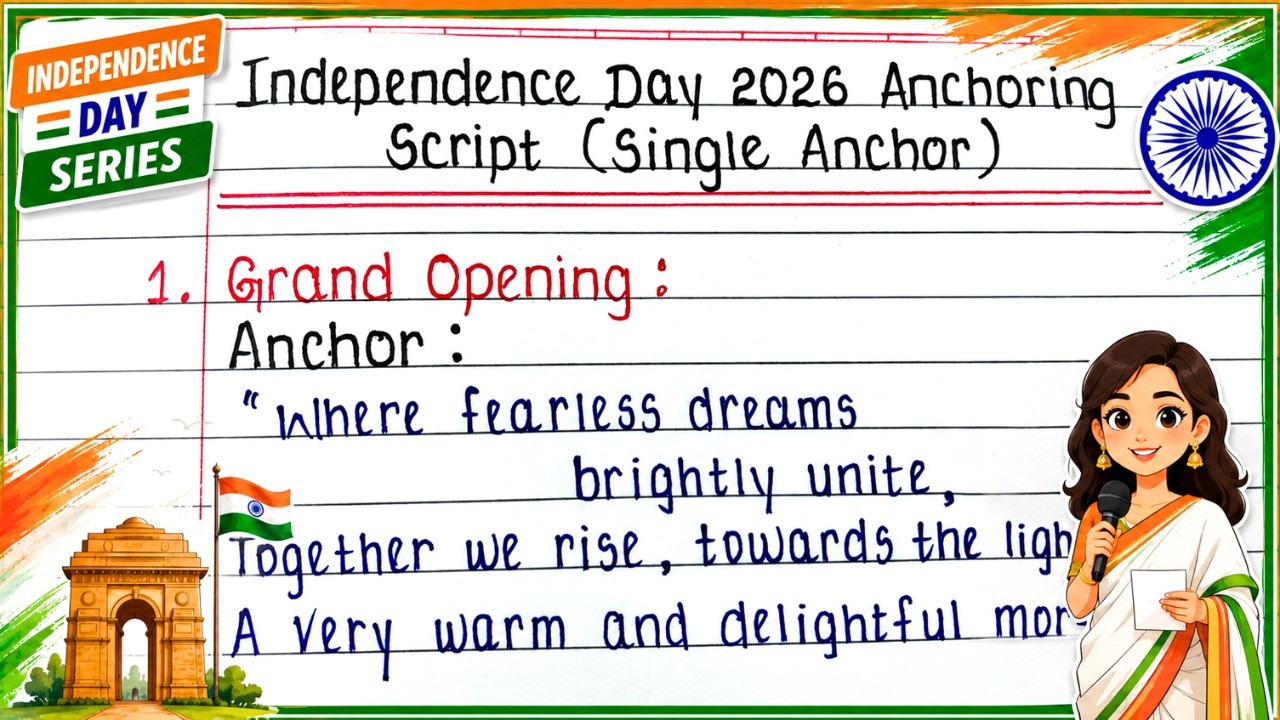 INDEPENDENCE
DAY
SERIES
Independence Day 2026 Anchoring
Script (Single Anchor)
1. Grand Opening :
Anchor :
"Where fearless dreams
brightly unite,
Together we rise, towards the ligh
A very warm and delightful mor-